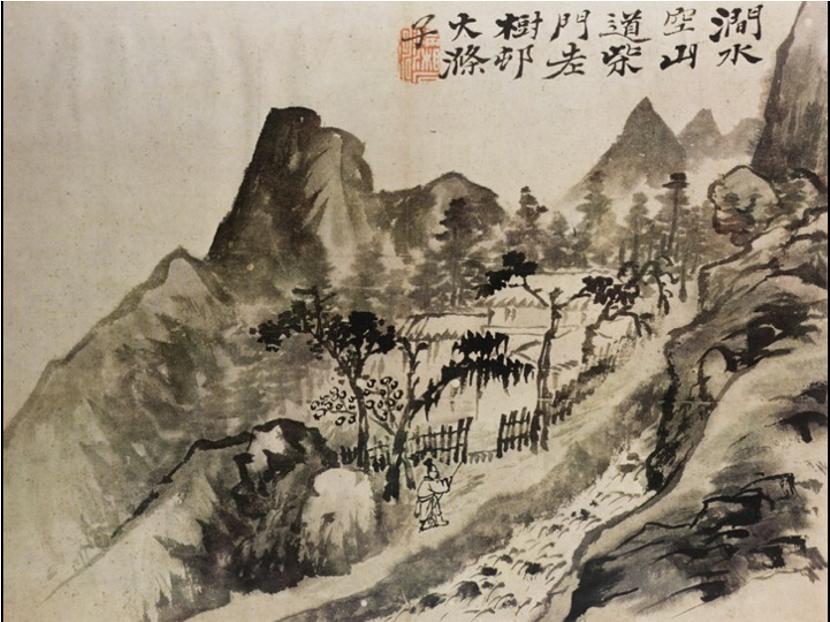 澗水
空山
道柴
門老
樹邨
大滌
子